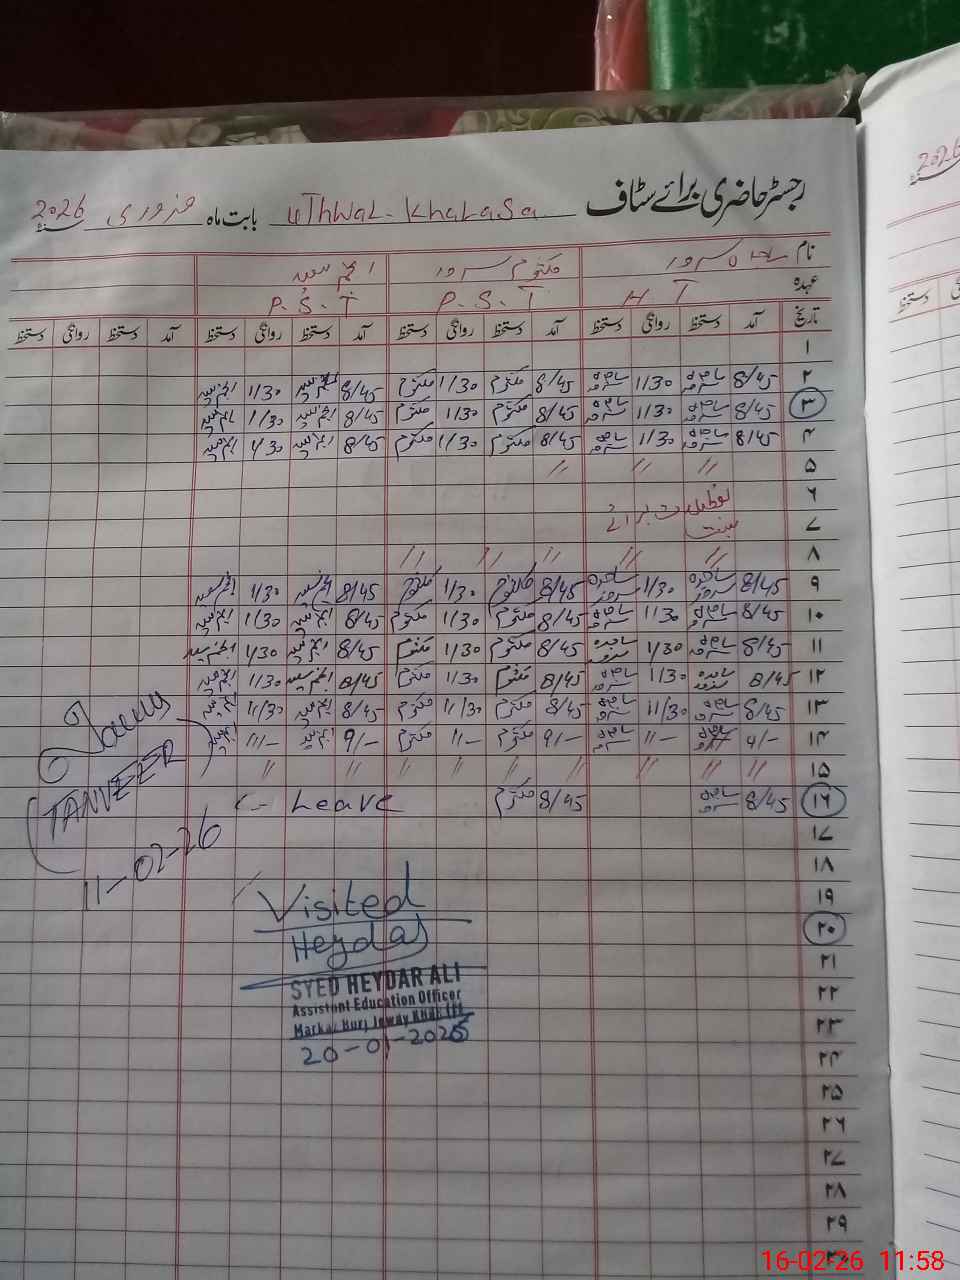 رجسٹر حاضری برائے سٹاف uThwal-Khalasa بابت ماہ فروری 2026
نام ساجدہ سرور مکتوم سرور
عہدہ H T P.S.T P.S.T
تاریخ آمد دستخط روانگی دستخط آمد دستخط روانگی دستخط آمد دستخط روانگی دستخط آمد دستخط روانگی دستخط
۱
۲ 8/45 ساجدہ سرور 1/30 ساجدہ سرور 8/45 مکتوم 1/30 مکتوم 8/45 1/30
۳ 8/45 ساجدہ سرور 1/30 ساجدہ سرور 8/45 مکتوم 1/30 مکتوم 8/45 1/30
۴ 8/45 ساجدہ سرور 1/30 ساجدہ سرور 8/45 مکتوم 1/30 مکتوم 8/45 1/30
۵ // // //
۶ تعطیلات برائے
۷ بسنت
۸ // // // // //
۹ 8/45 ساجدہ سرور 1/30 ساجدہ سرور 8/45 مکتوم 1/30 مکتوم 8/45 1/30
۱۰ 8/45 ساجدہ سرور 1/30 ساجدہ سرور 8/45 مکتوم 1/30 مکتوم 8/45 1/30
۱۱ 8/45 ساجدہ سرور 1/30 ساجدہ سرور 8/45 مکتوم 1/30 مکتوم 8/45 1/30
۱۲ 8/45 ساجدہ سرور 1/30 ساجدہ سرور 8/45 مکتوم 1/30 مکتوم 8/45 1/30
۱۳ 8/45 ساجدہ سرور 11/30 ساجدہ سرور 8/45 مکتوم 11/30 مکتوم 8/45 11/30
۱۴ 9/- ساجدہ سرور 11/- ساجدہ سرور 9/- مکتوم 11/- مکتوم 9/- 11/-
۱۵ // // // // // // // // //
۱۶ 8/45 ساجدہ سرور 8/45 مکتوم Leave
۱۷
۱۸
۱۹
۲۰
۲۱
۲۲
۲۳
۲۴
۲۵
۲۶
۲۷
۲۸
۲۹
۳۰
(TANVEER)
11-02-26
Visited
Heydar
SYED HEYDAR ALI
Assistant Education Officer
20-01-2026
2026
دستخط
16-02-26 11:58